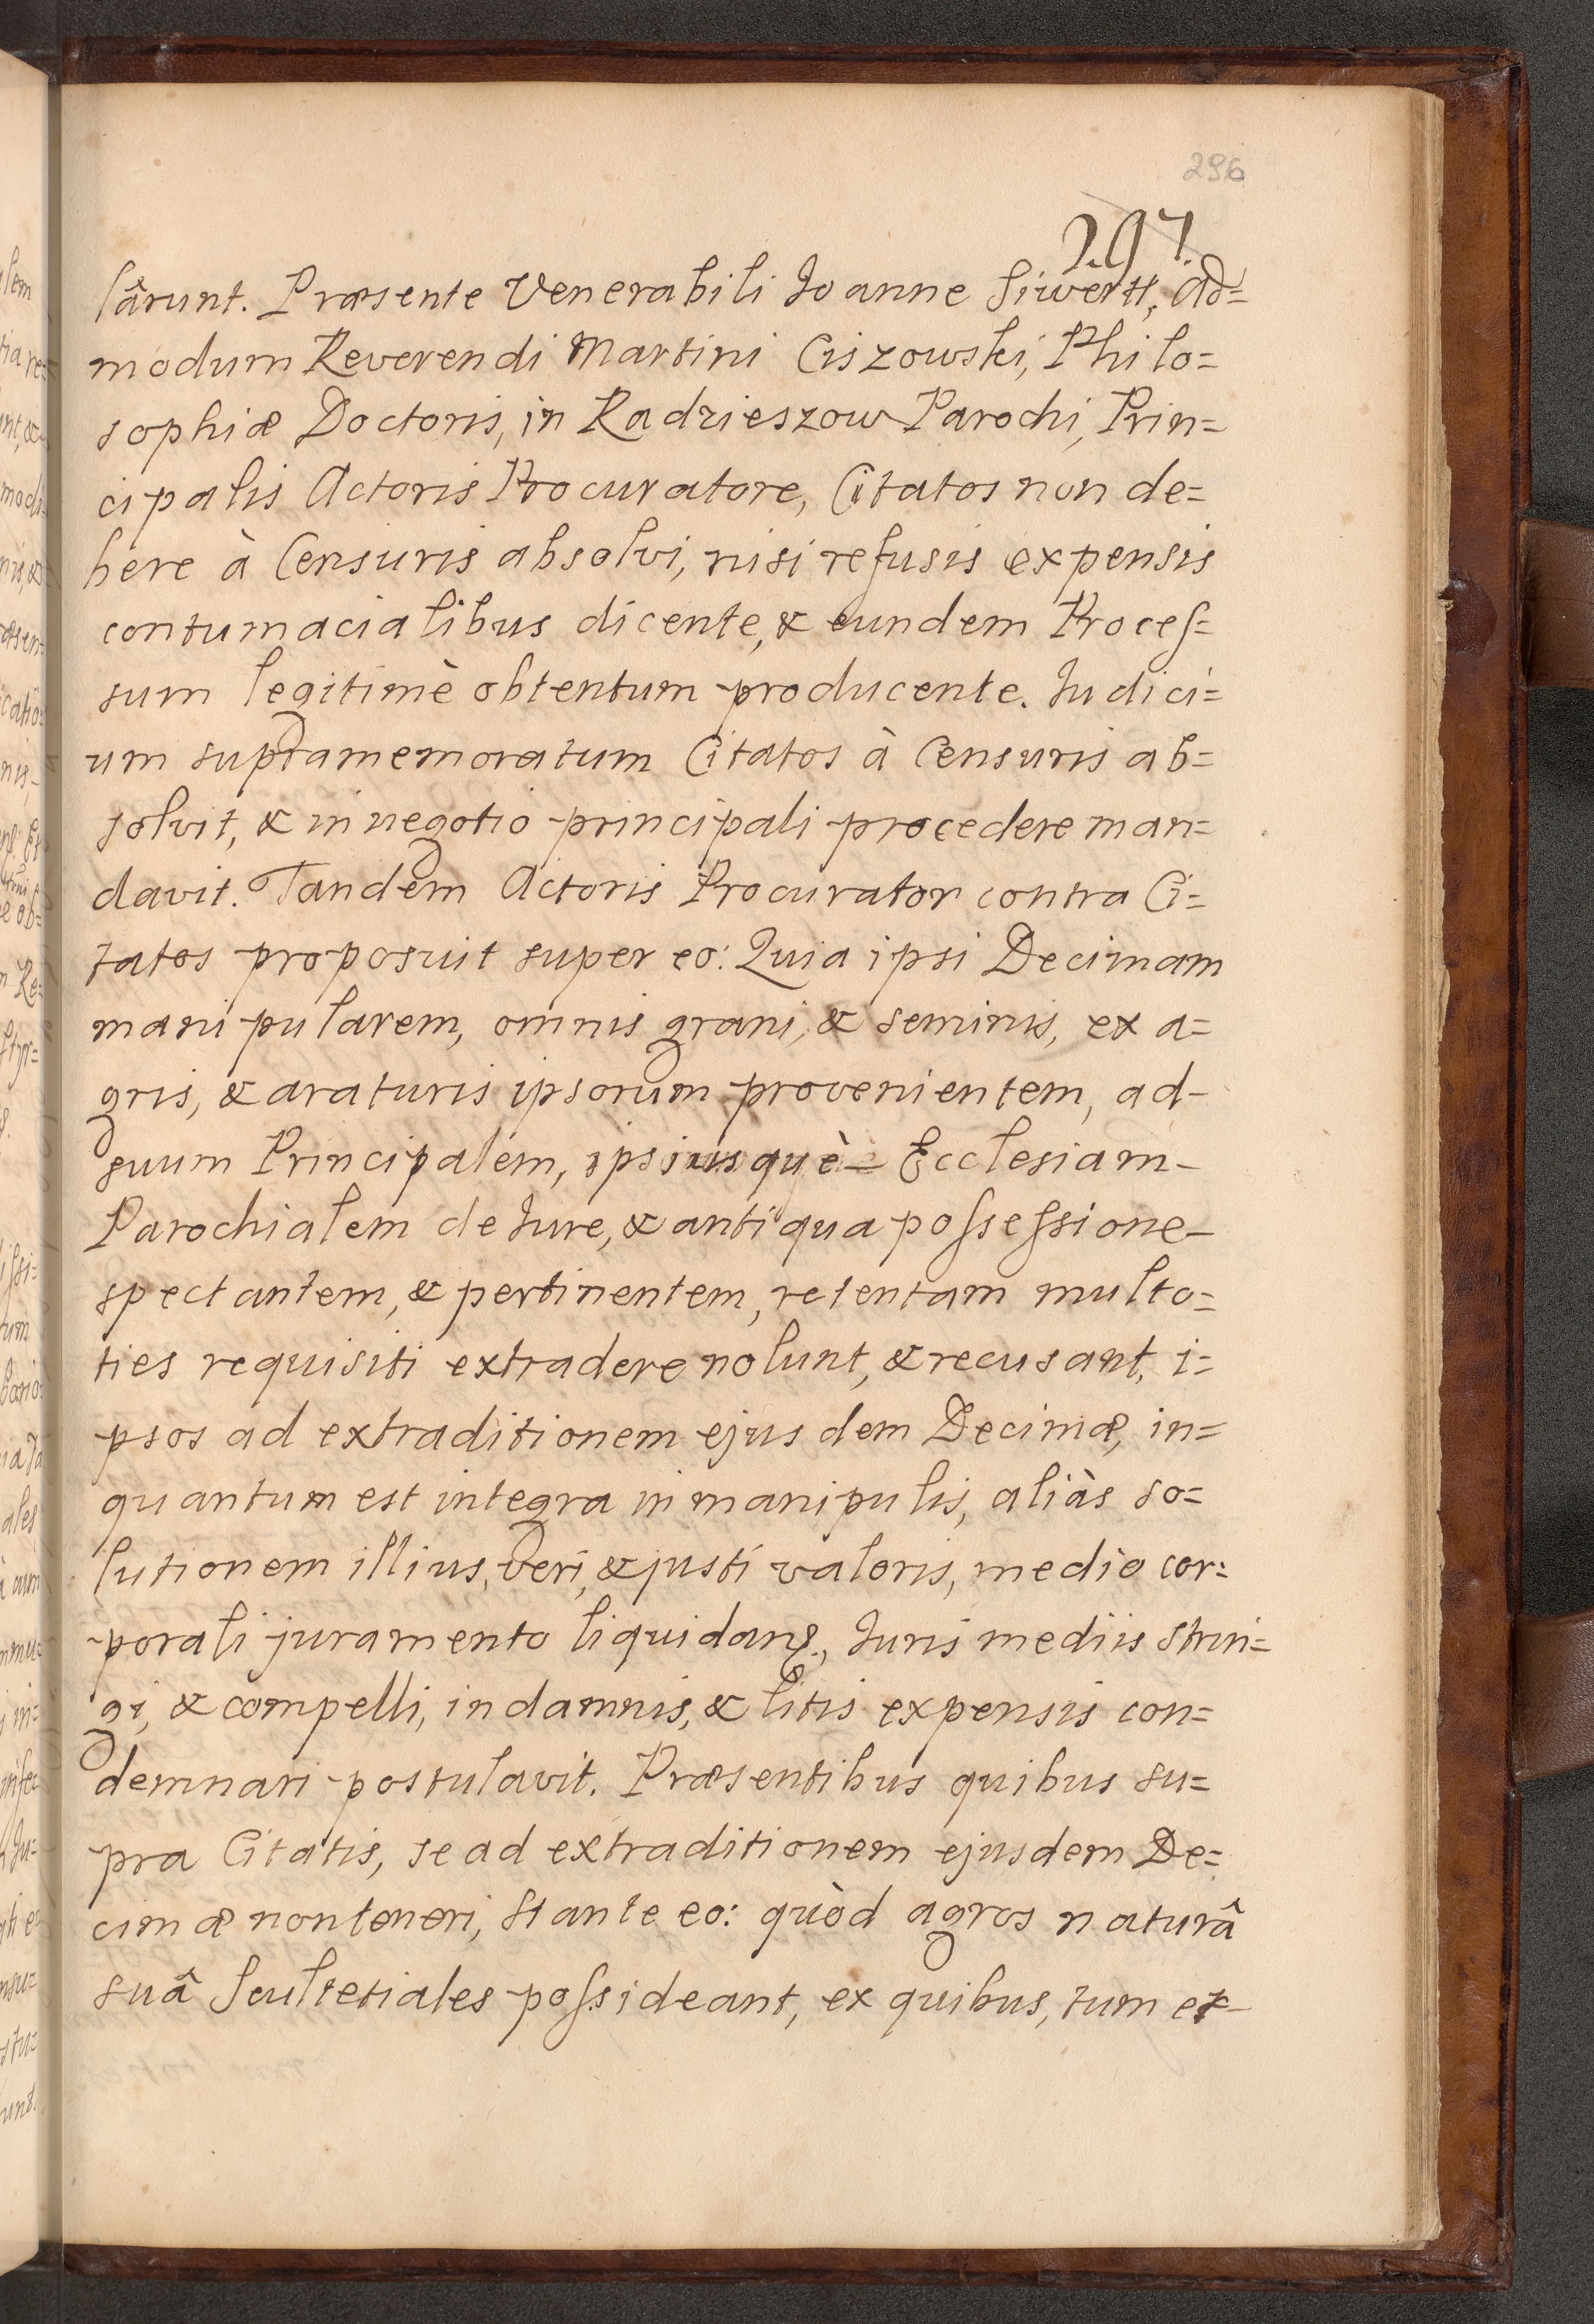 296
297.
lârunt. Præsente Venerabili Joanne Siwertt, Ad=
modum Reverendi Martini Ciszowski, Philo=
sophiæ Doctoris, in Radzieszow Parochi, Prin=
cipalis Actoris Procuratore, Citatos non de=
bere à Censuris absolvi, nisi refusis expensis
contumacialibus dicente, & eundem Proceſ=
sum legitimè obtentum producente. Judici=
um supramemoratum Citatos à Censuris ab=
solvit, & in negotio principali procedere man=
davit. Tandem Actoris Procurator contra Ci=
tatos proposuit super eo: Quia ipsi Decimam
manipularem, omnis grani, & seminis, ex a=
gris, & araturis ipsorum provenientem, ad-
suum Principalem, ipsiusquè- Ecclesiam-
Parochialem de Jure, & antiqua poſseſsione-
spectantem, & pertinentem, retentam multo=
ties requisiti extradere nolunt, & recusant, i=
psos ad extraditionem ejusdem Decimæ, in=
quantum est integra in manipulis, aliàs so=
lutionem illius, veri, & justi valoris, medio cor=
porali juramento liquidanꝗ, Juris mediis strin=
gi, & compelli, in damnis, & litis expensis con=
demnari postulavit. Præsentibus quibus su=
pra Citatis, se ad extraditionem ejusdem De=
cimæ non teneri, stante eo: quòd agros naturâ
suâ Scultetiales poſsideant, ex quibus, tum et-